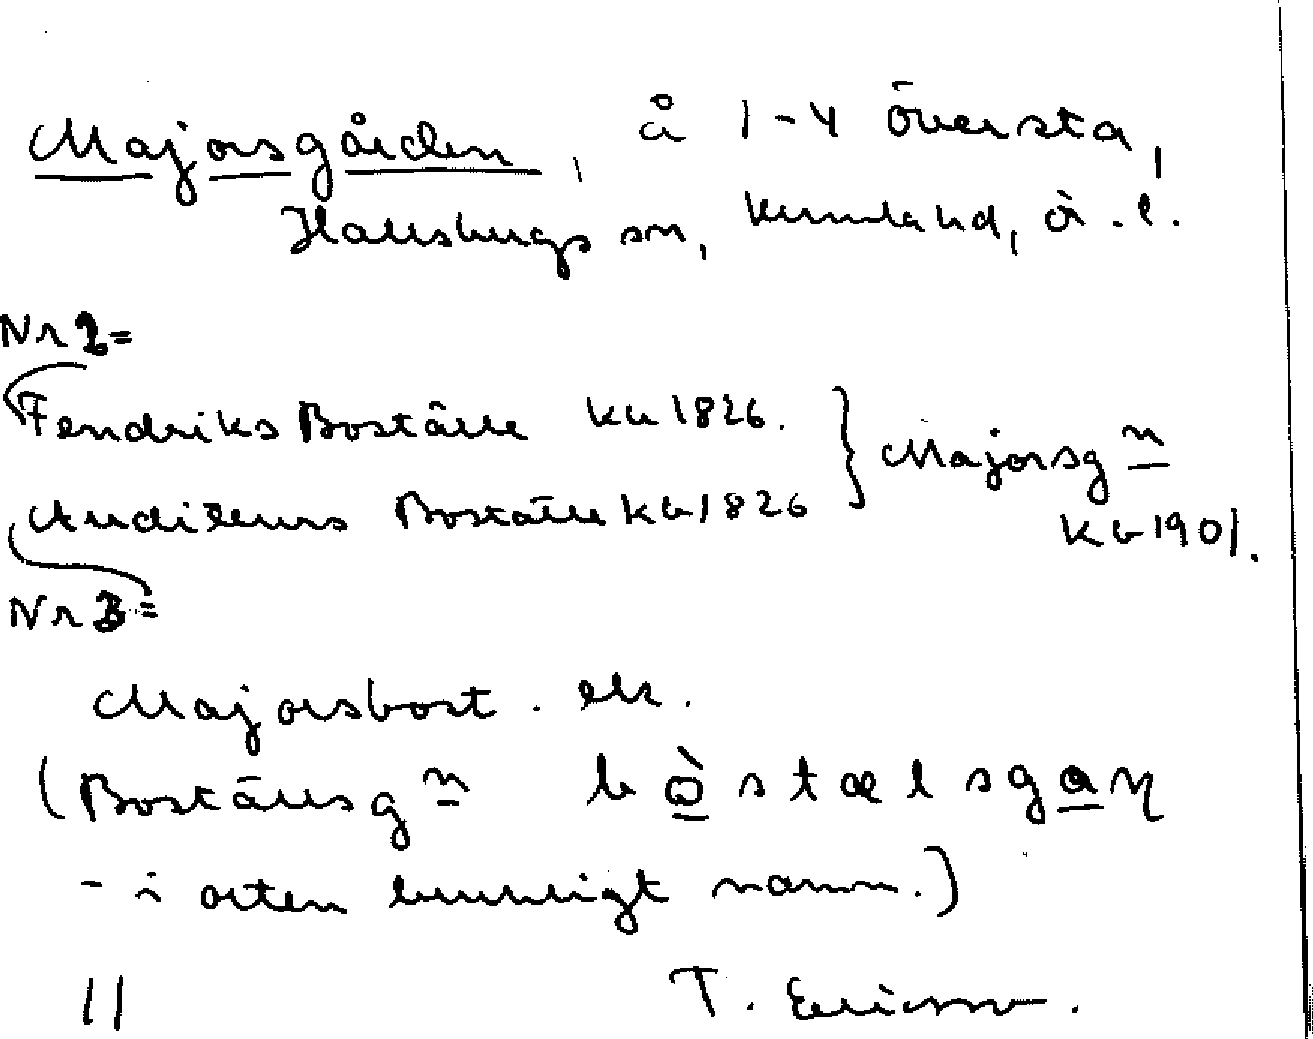 Majorsgården, å 1-4 Översta,
Hallsbergs sn, Kumla hd, Ör. l.
Nr 2=
Fendriks Boställe kb 1826.
Auditeurs Boställe kb 1826 } Majorsgn
kb 1901.
Nr 3=
Majorsbost. ek.
(Boställsgn bò̱stælsga̱ɳ
- i orten brukligt namn.)
||
T. Ericsson.